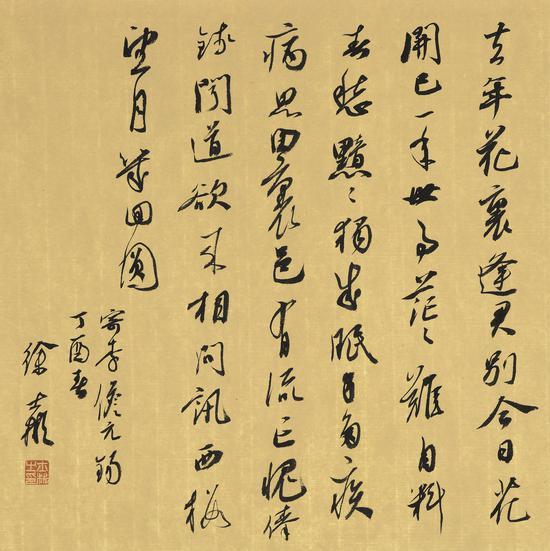 去年花裏逢君别今日花
開已一年世事茫〻難自料
春愁黯〻獨成眠身多疾
病思田裏邑有流亡愧俸
錢聞道欲来相問訊西樓
望月幾回圓
寄李儋元錫
丁酉春
徐